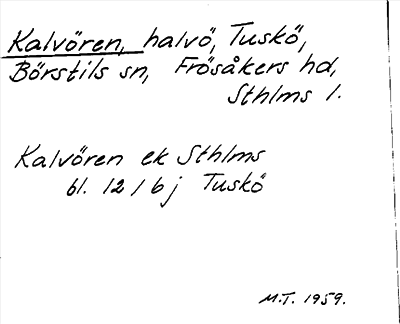 Kalvören, halvö, Tuskö,
Börstils sn, Frösåkers hd,
Sthlms l.
Kalvören ek Sthlms
bl. 12 / 6 j Tuskö
M.T. 1959.